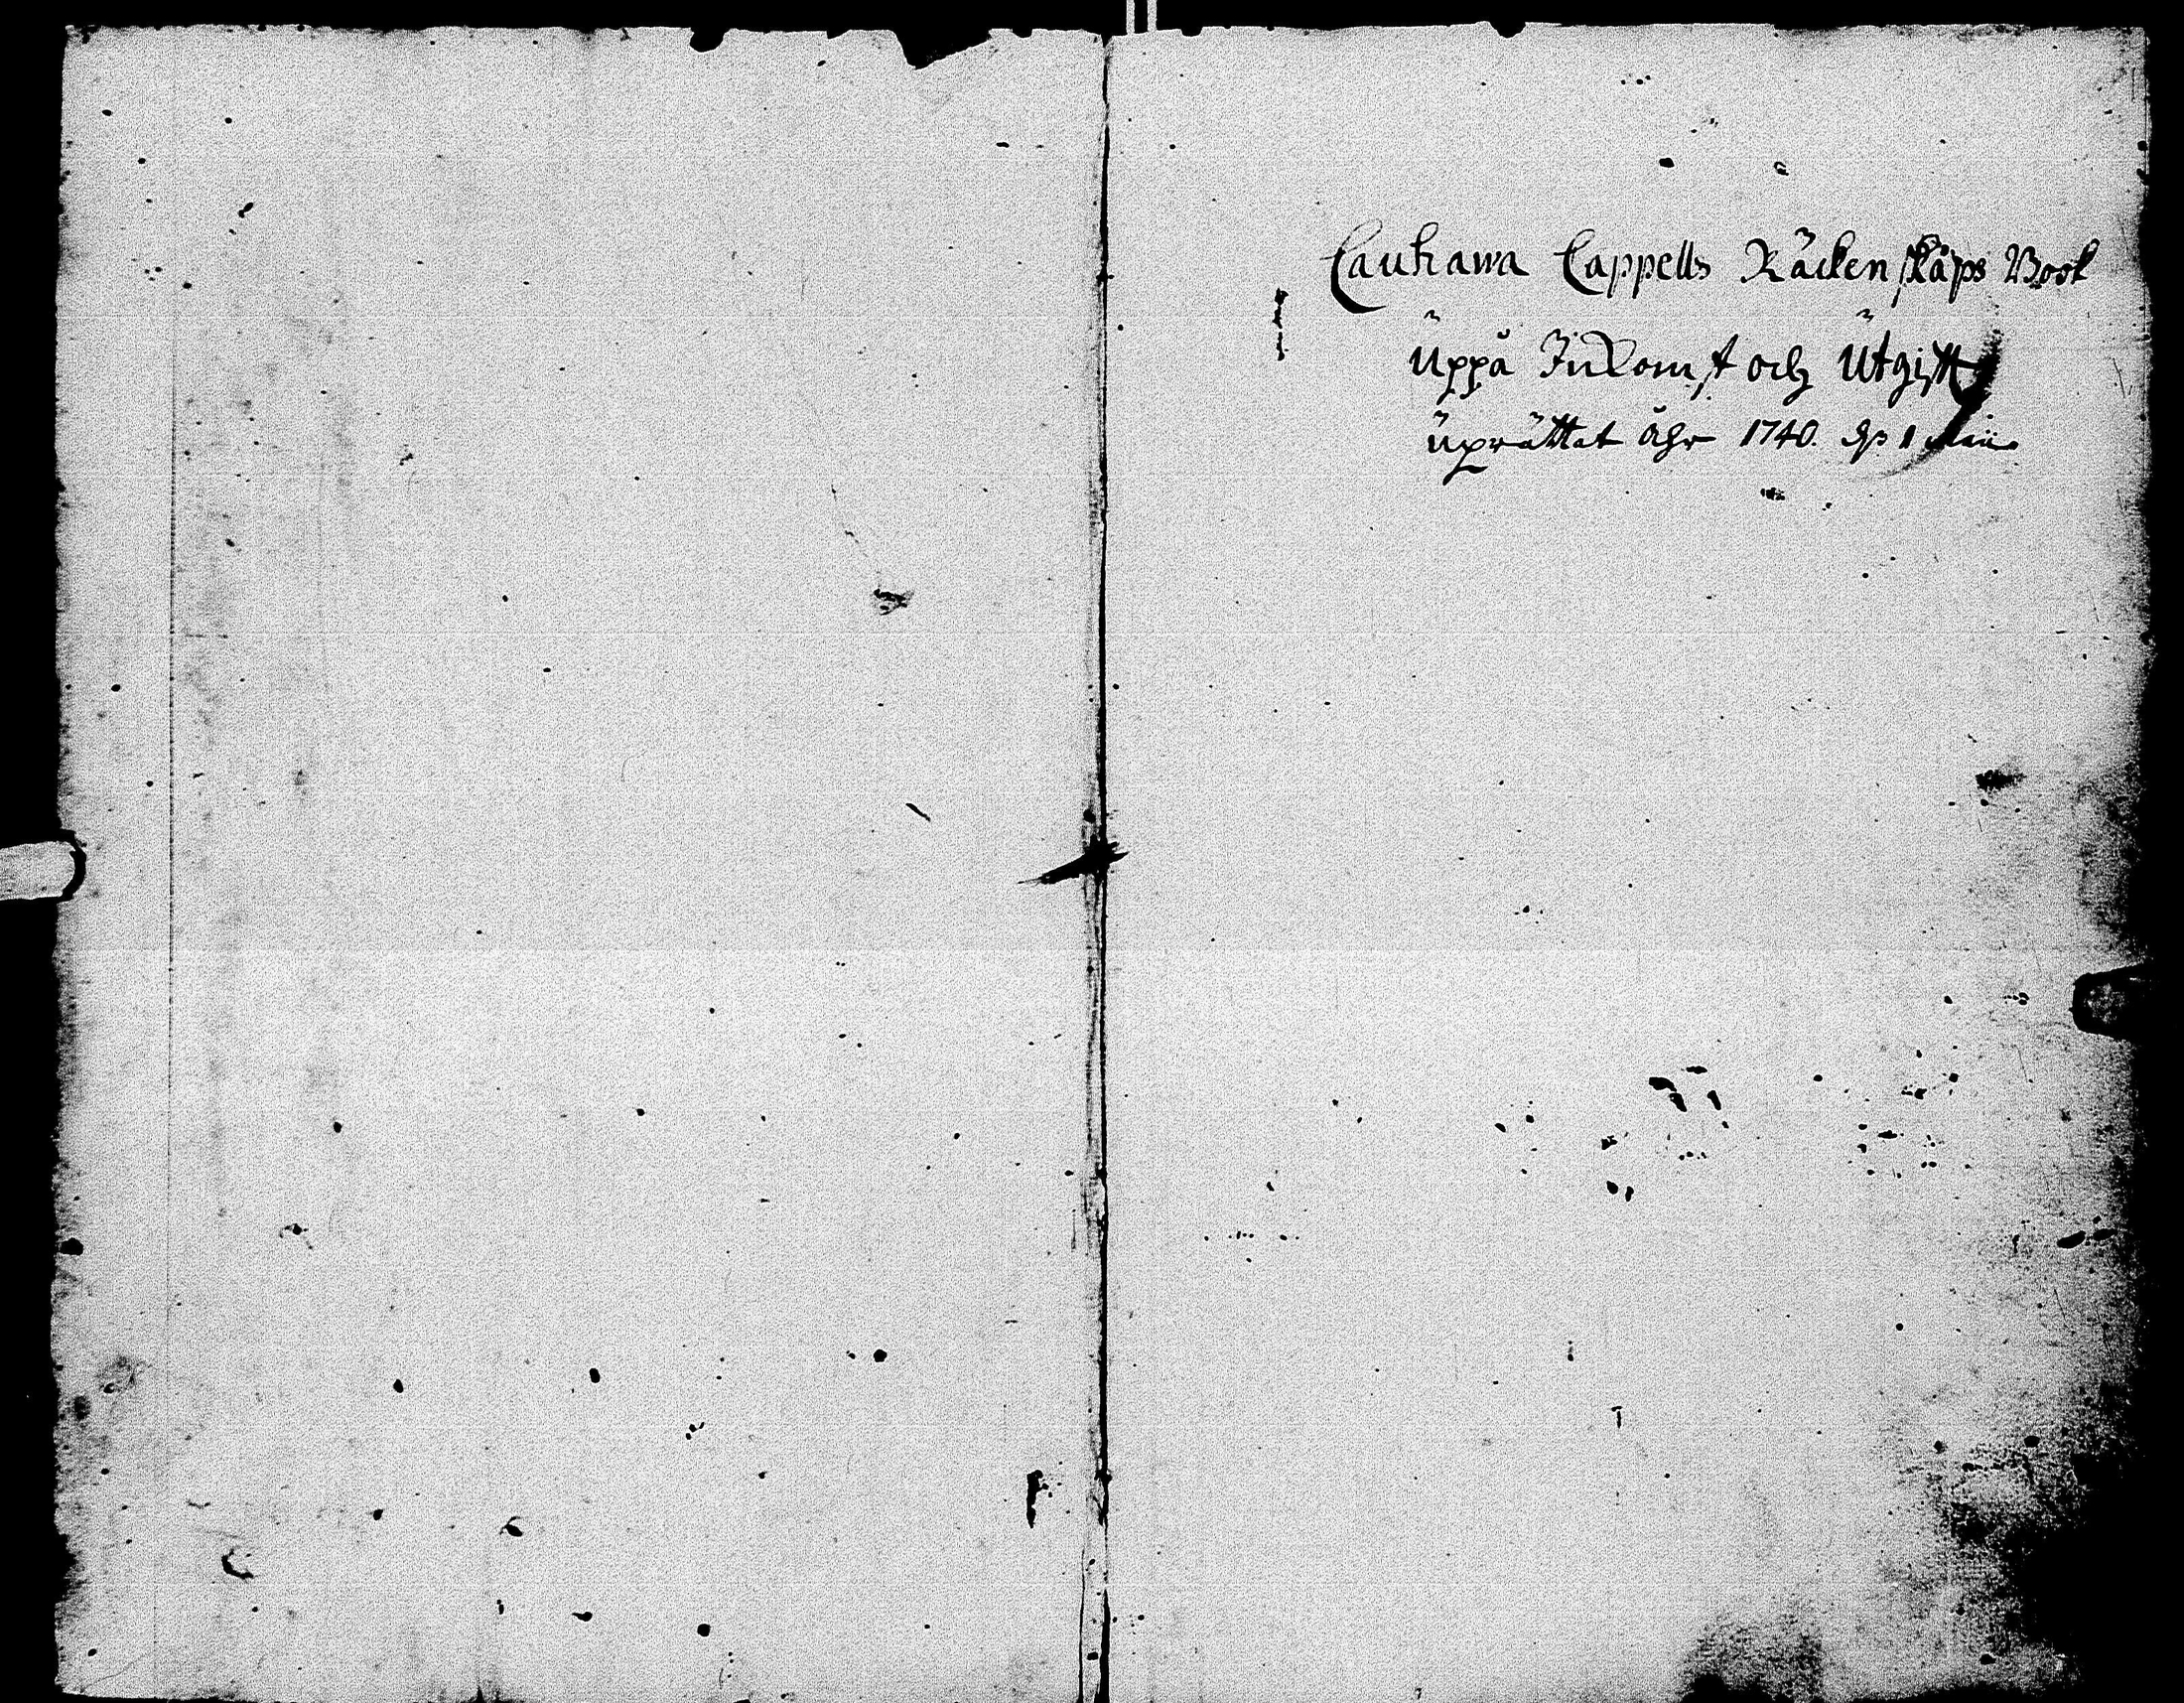 Cauhawa Cappells Räcken skåps Book
Uppå Inkomst och Utgifft
uprättat åhr 1740. d. 1